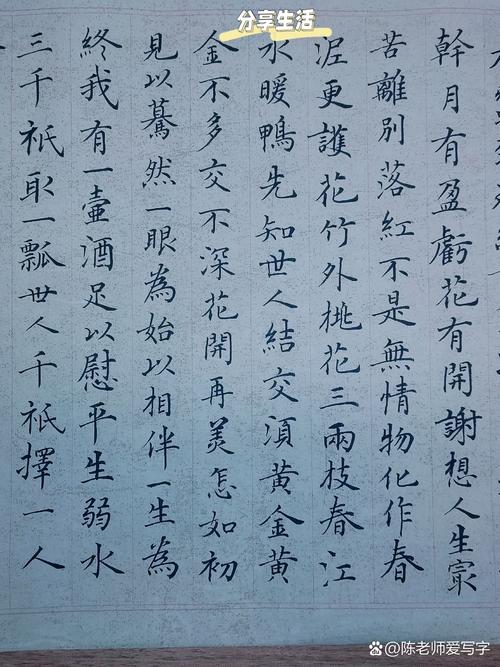 分享生活
幹月有盈虧花有開謝想人生㝡
苦離別落紅不是無情物化作春
泥更護花竹外桃花三兩枝春江
水暖鴨先知世人結交須黃金黃
金不多交不深花開再美怎如初
見以驀然一眼為始以相伴一生為
終我有一壺酒足以慰平生弱水
三千祇取一瓢世人千祇擇一人
陈老师爱写字